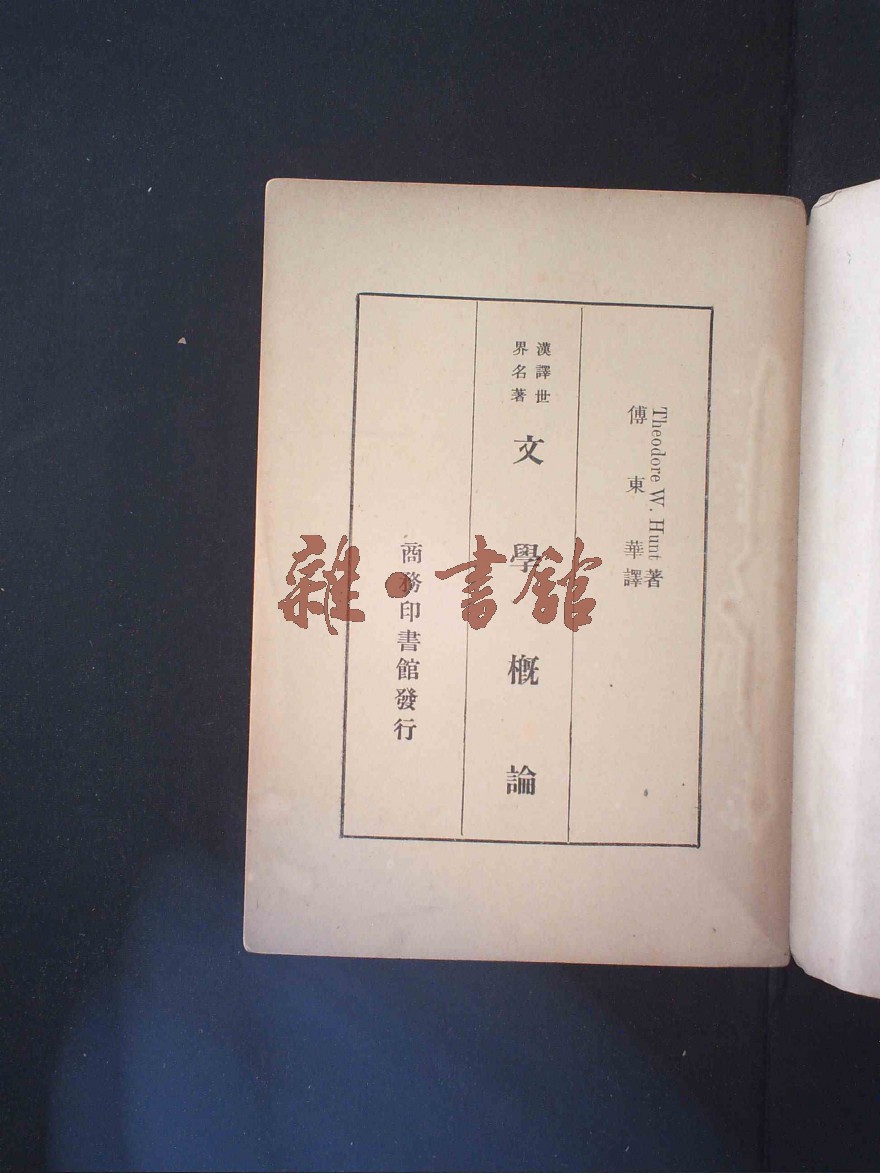 Theodore W. Hunt 著
傅東華譯
漢譯世
界名著
文學概論
商務印書館發行
雜·書館